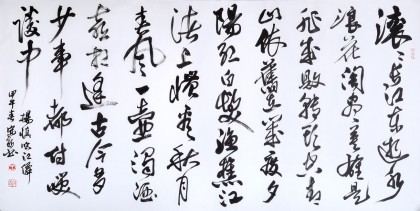 滚々長江東逝水
浪花淘尽英雄是
非成败转头空青
山依舊在几度夕
陽红白髮渔樵江
渚上惯看秋月
春风一壶浊酒
喜相逢古今多
少事都付笑
谈中
楊慎临江仙
甲午春